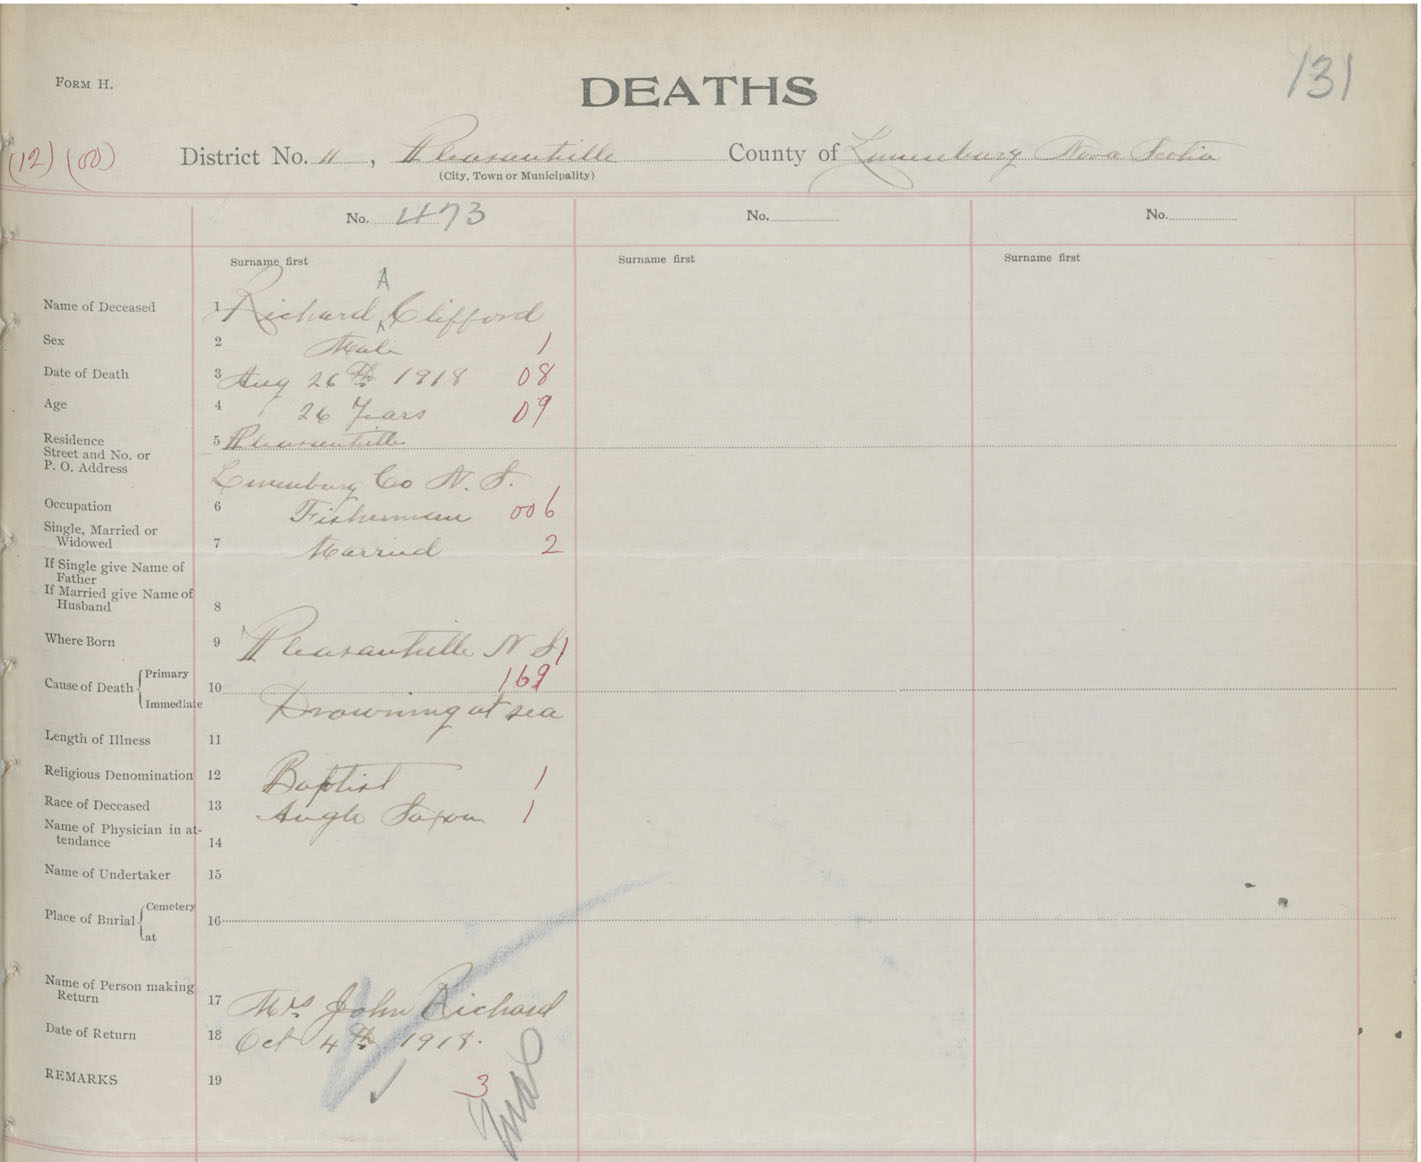 131
FORM H.
DEATHS
(12) (00)
District No. 11, Pleasantville County of Lunenburg Nova Scotia
(City, Town or Municipality)
No. 473 No. No.
Surname first Surname first Surname first
A
Name of Deceased 1 Richard ^ Clifford
Sex 2 Male 1
Date of Death 3 Aug 26th 1918 08
Age 4 26 Years 09
Residence 5 Pleasantville
Street and No. or
P. O. Address
Lunenburg Co N. S.
Occupation 6 Fisherman 006
Single, Married or
Widowed 7 Married 2
If Single give Name of
Father
If Married give Name of
Husband 8
Where Born 9 Pleasantville N S 1
Primary 169
Cause of Death 10
Immediate Drowning at sea
Length of Illness 11
Religious Denomination 12 Baptist 1
Race of Deceased 13 Anglo Saxon 1
Name of Physician in at-
tendance 14
Name of Undertaker 15
Cemetery
Place of Burial 16
at
Name of Person making
Return 17 Mrs John Richard
Date of Return 18 Oct 4th 1918.
REMARKS 19
3